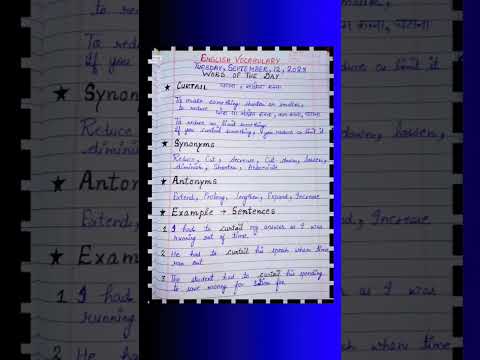 ENGLISH VOCABULARY
TUESDAY, SEPTEMBER, 12, 2023
WORD OF THE DAY
★ CURTAIL घटाना,
To make something shorter or smaller,
To reduce
To reduce or limit something
If you curtail something, you reduce or limit it
★ Synonyms
Reduce, Cut, decrease, Cut down, lessen,
diminish, Shorten, Abbreviate
★ Antonyms
Extend, Prolong, lengthen, Expand, Increase
★ Example → Sentences
1 I had to curtail my answer as I was
running out of time.
2 He had to curtail his speech when time
ran out
3 The student had to curtail his spending
to save money for